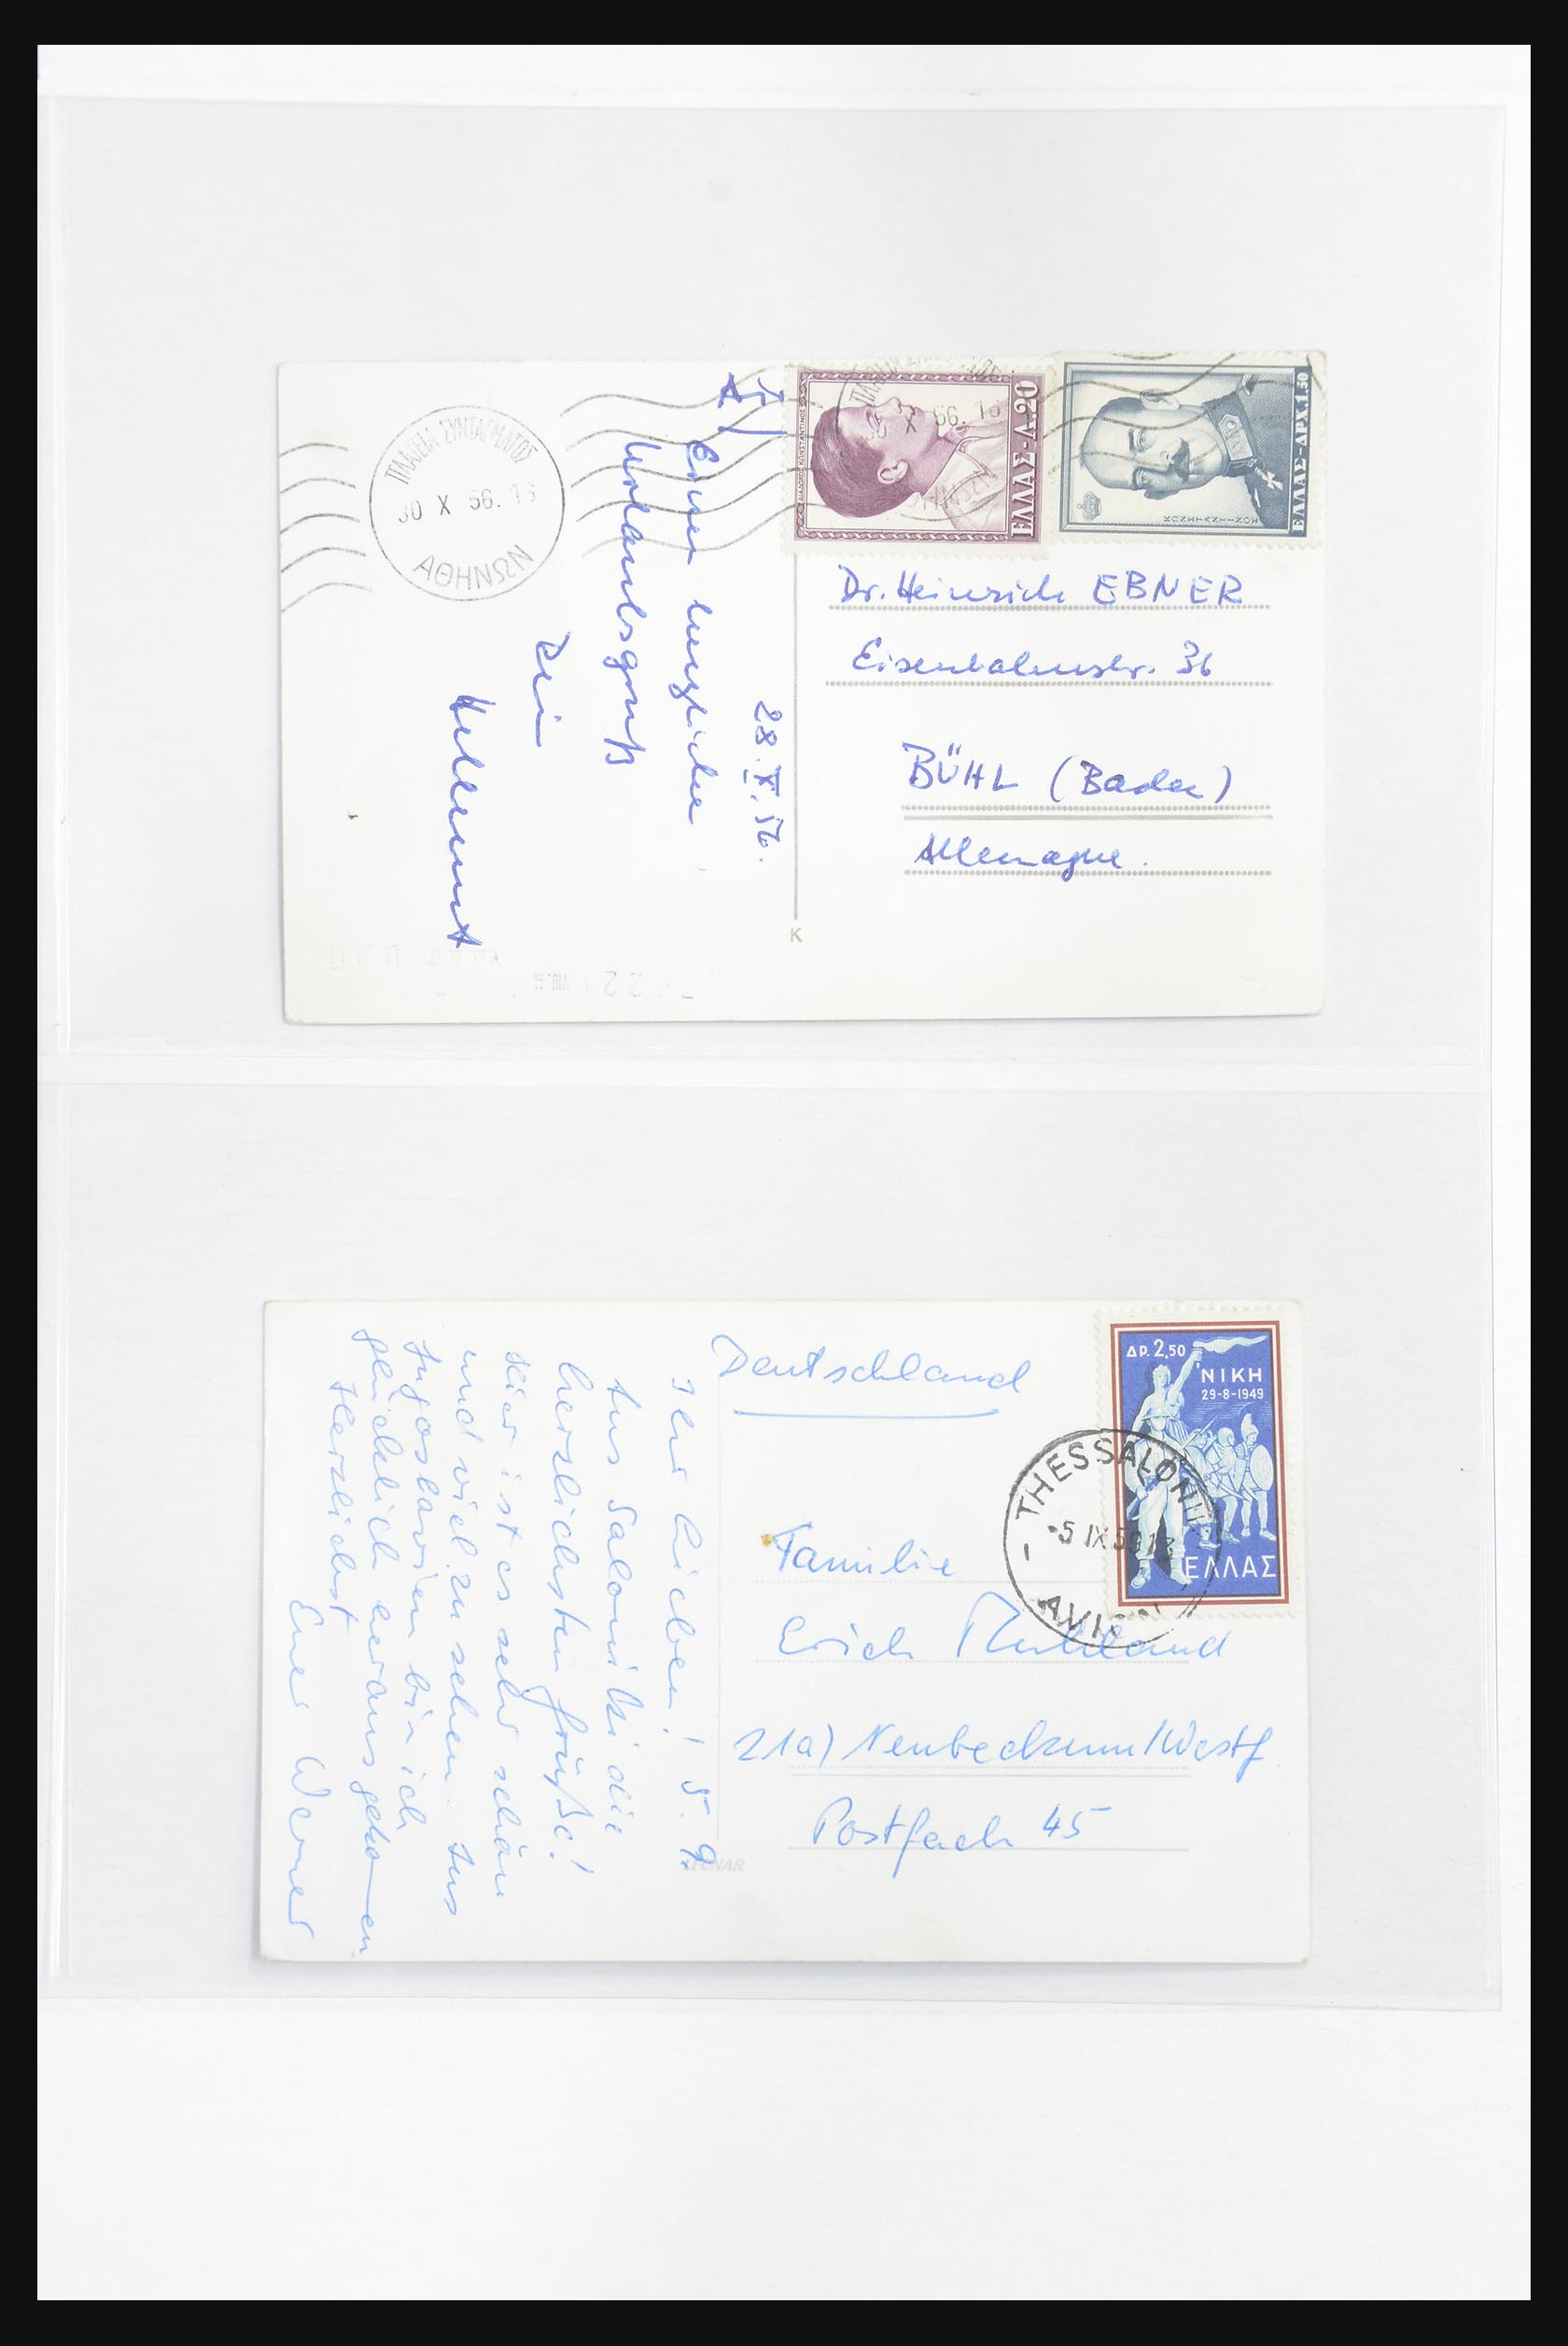 ΠΛΑΤΕΙΑ ΣΥΝΤΑΓΜΑΤΟΣ
30 X 56. 16
ΑΘΗΝΩΝ
ΔΙΑΔΟΧΟΣ ΚΩΝΣΤΑΝΤΙΝΟΣ
ΕΛΛΑΣ-Λ.20
30 X 56. 16
ΚΩΝΣΤΑΝΤΙΝΟΣ
ΕΛΛΑΣ-ΔΡΧ.1.50
28.X.56.
Einen herzlichen
Urlaubsgruß
Dein
Hellmut
Dr. Heinrich EBNER
Eisenbahnstr. 36
BÜHL (Baden)
Allemagne.
K
ΔΡ. 2,50
ΝΙΚΗ
29-8-1949
ΕΛΛΑΣ
THESSALONIKI
-5 IX 59 18
AVION
Deutschland
Familie
Erich
21a) Neubeckum/Westf
Postfach 45
Ihr Lieben! 5. 9.
Aus Saloniki die
herzlichsten Grüße!
Hier ist es sehr schön
und viel zu sehen. Aus
Jugoslavien bin ich
glücklich herausgekommen.
Herzlichst
Euer Werner
LEONAR